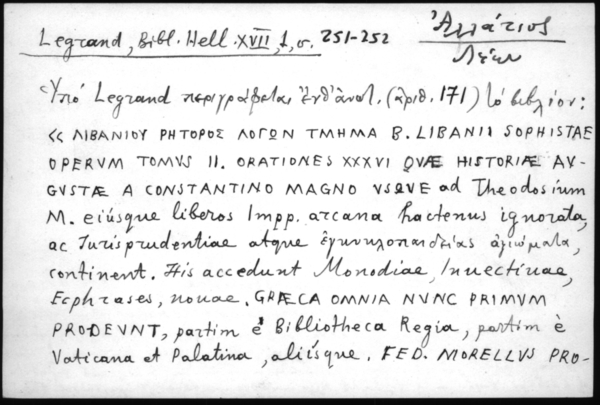 Legrand, Bibl. Hell. XVII, 1, σ. 251-252
Ἀλλάτιος
Λέων
Ὑπὸ Legrand περιγράφεται ἐνθ' ἀνωτ. (ἀριθ. 171) τὸ βιβλίον:
« ΛΙΒΑΝΙΟΥ ΡΗΤΟΡΟΣ ΛΟΓΩΝ ΤΜΗΜΑ Β. LIBANII SOPHISTAE
OPERVM TOMVS II. ORATIONES XXXVI QVÆ HISTORIÆ AV-
GVSTÆ A CONSTANTINO MAGNO VSQVE ad Theodosium
M. eiúsque liberos Impp. arcana hactenus ignorata,
ac Iurisprudentiae atque ἐγκυκλοπαιδείας ἀξιώματα,
continent. His accedunt Monodiae, Inuectiuae,
Ecphrases, nouae. GRÆCA OMNIA NVNC PRIMVM
PRODEVNT, partim è Bibliotheca Regia, partim è
Vaticana et Palatina, aliísque. FED. MORELLVS PRO-